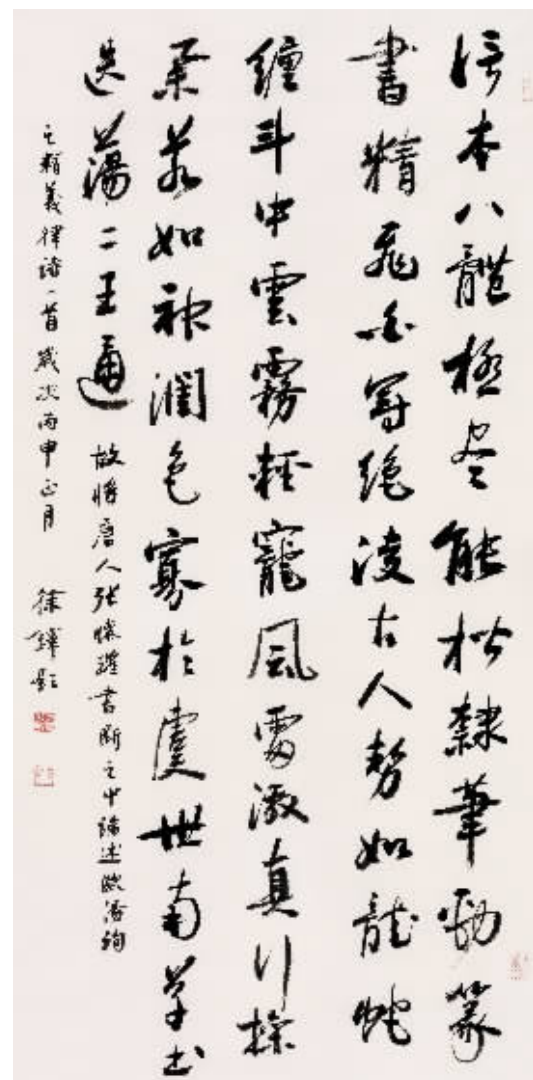 信本八體極尽能楷隸筆勁篆
書精飛白冠絕淩古人勢如龍蛇
纏斗中雲霧輕寵風雷激真行操
若如神潤色寡於虞世南草書
迭蕩二王通
故將唐人張懷瓘書斷之中論述歐陽詢
之精義律詩一首歲次丙申正月
徐